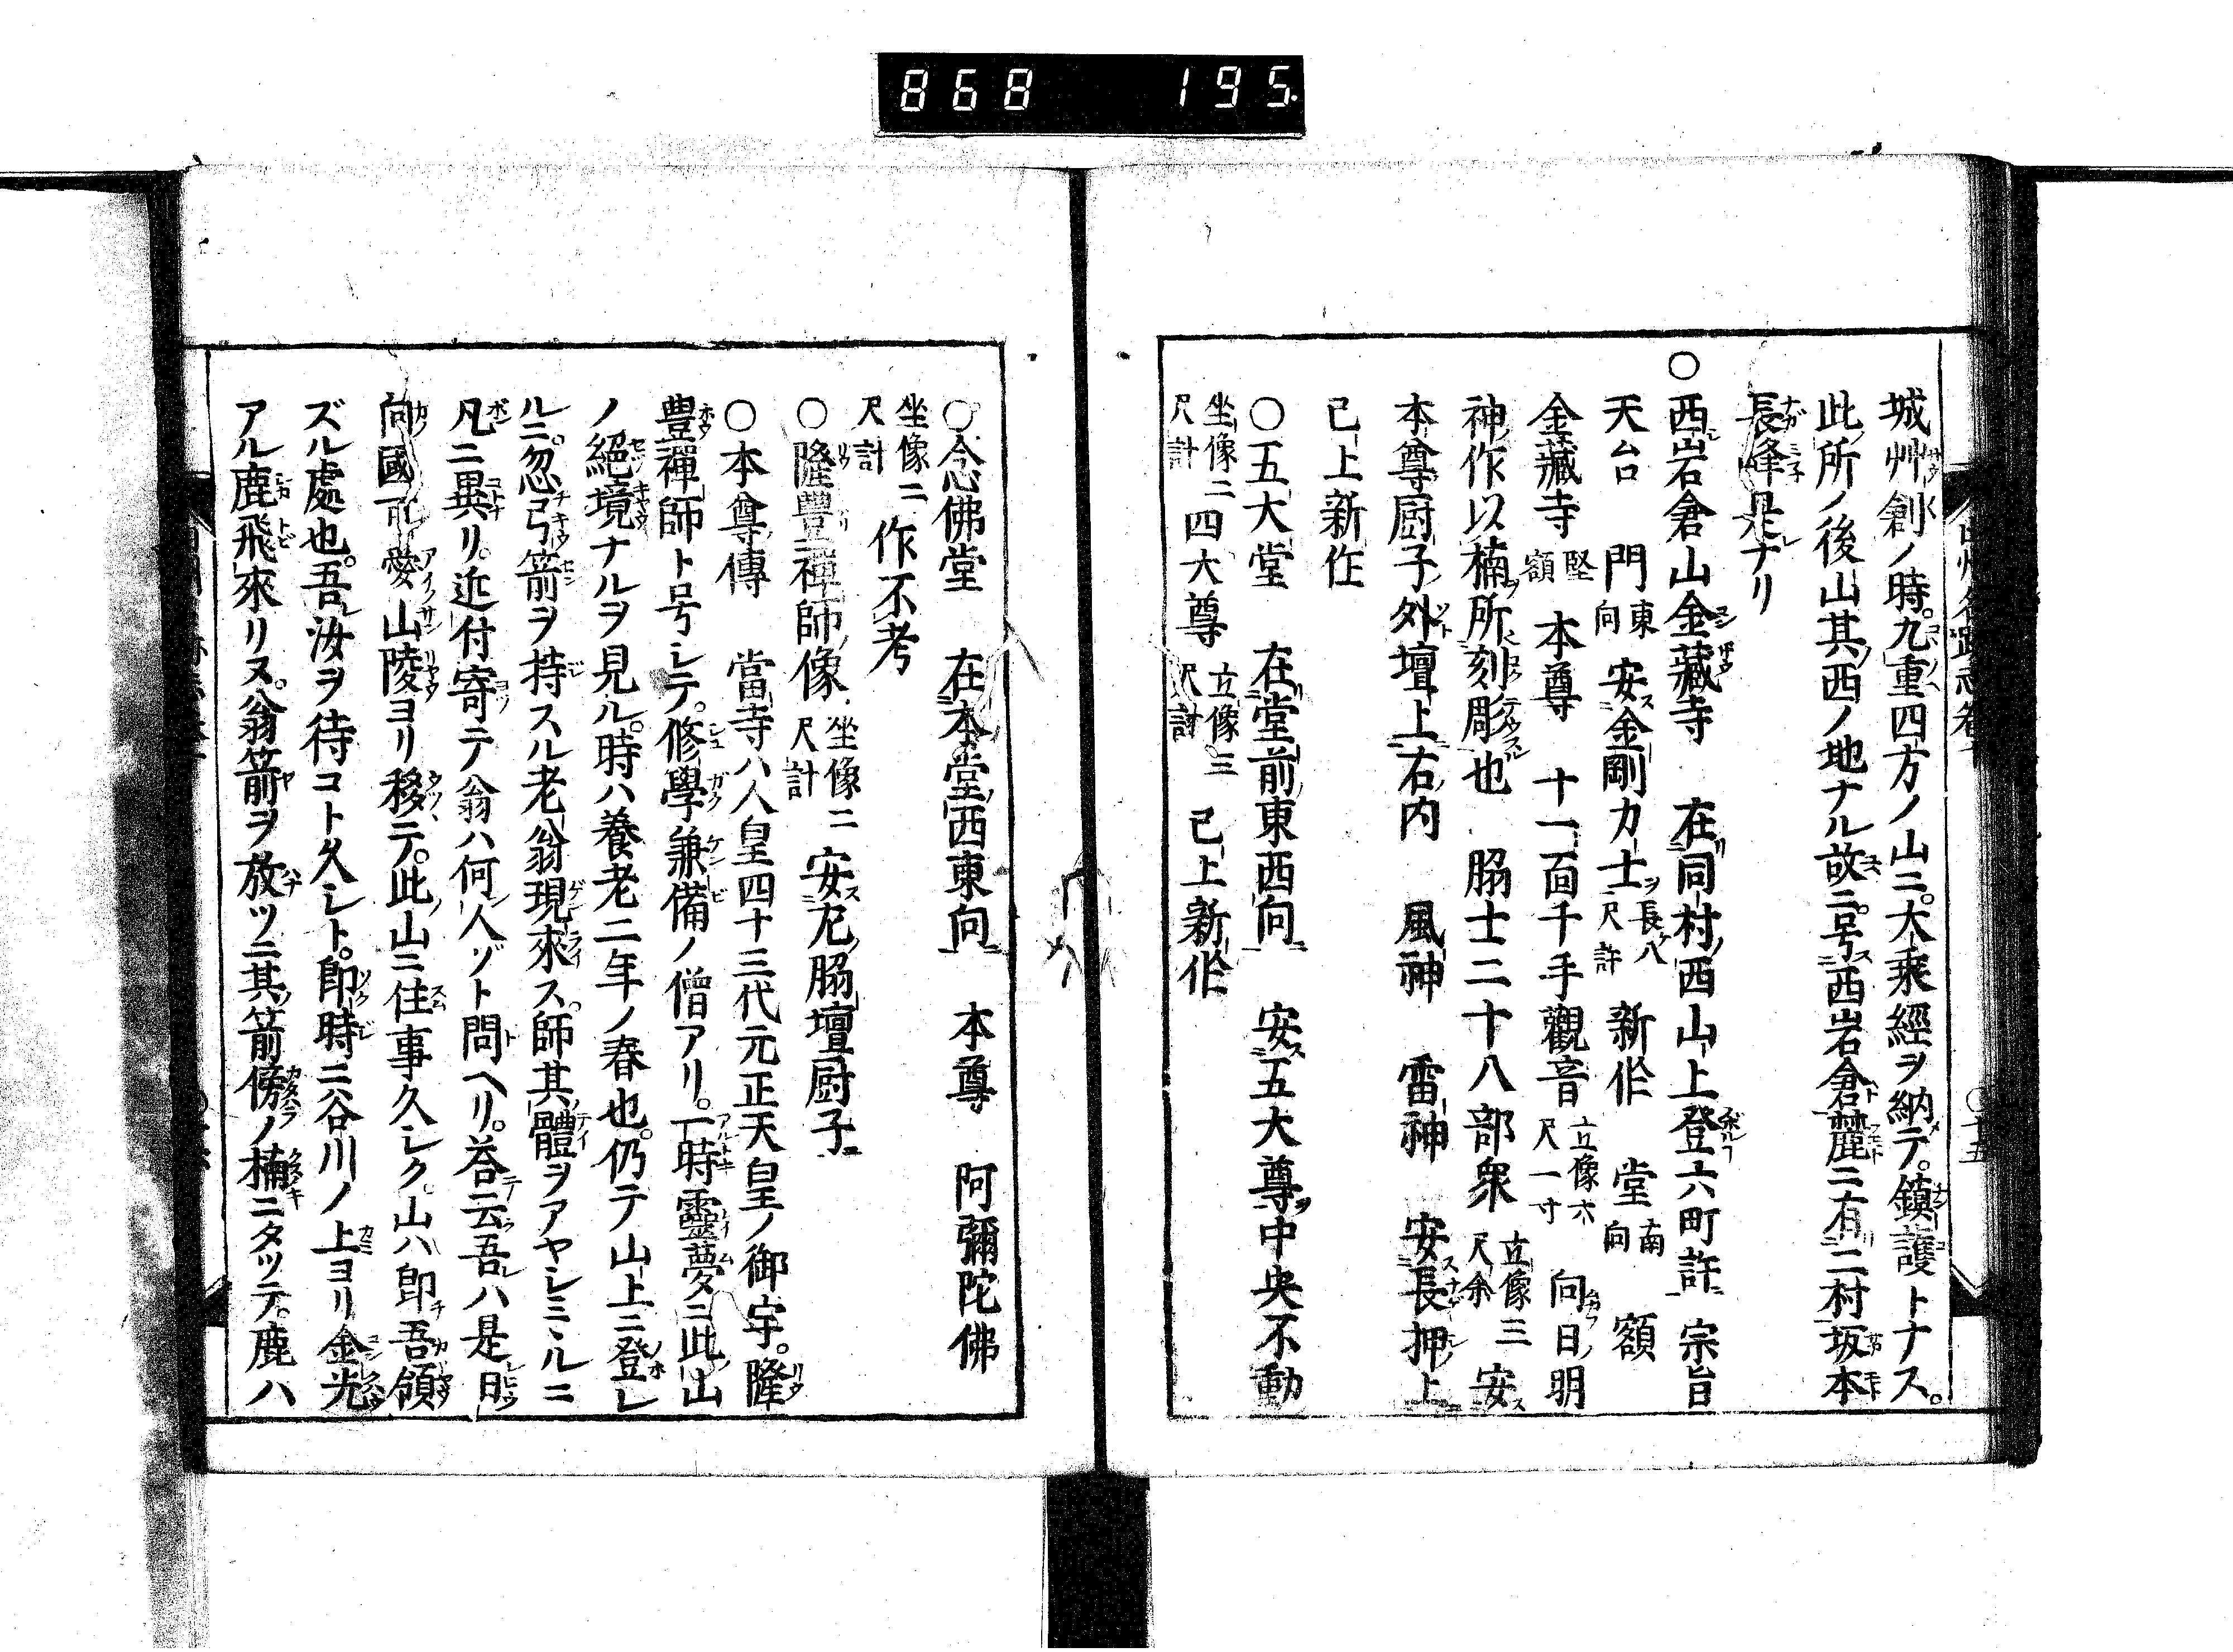 868 195.
城艸創ノ時。九重四方ノ山ニ。大乘經ヲ納テ。鎮護トナス。
此所ノ後山其西ノ地ナル故ニ。号西岩倉麓ニ有二村坂本
長峰是ナリ
○西岩倉山金藏寺 在同村西山上登六町許 宗旨
天台 門東向 安金剛力士長八尺許 新作 堂南向 額
金藏寺竪額 本尊 十一面千手觀音立像六尺一寸 向日明
神作以楠所刻彫也 脇士二十八部衆立像三尺余 安
本尊厨子外壇上右内 風神 雷神 安長押上
已上新作
○五大堂 在堂前東西向 安五大尊中央不動
坐像二尺計 四大尊立像三尺計 已上新作
○念佛堂 在本堂西東向 本尊 阿彌陀佛
坐像二尺計 作不考
○隆豐禪師像坐像二尺計 安左脇壇厨子
○本尊傳 當寺ハ人皇四十三代元正天皇ノ御宇。隆
豊禪師ト号シテ。修學兼備ノ僧アリ。一時靈夢ニ此山
ノ絕境ナルヲ見ル。時ハ養老二年ノ春也。仍テ山上ニ登レ
ルニ。忽弓箭ヲ持スル老翁現來ス。師其體ヲアヤシミルニ
凡ニ異リ。近付寄テ翁ハ何人ゾト問ヘリ。荅云吾ハ是日
向國可愛山陵ヨリ移テ。此山ニ住事久シク。山ハ即吾領
ズル處也。吾汝ヲ待コト久シト。即時ニ谷川ノ上ヨリ金光
アル鹿飛來リヌ。翁箭ヲ放ツニ其箭傍ノ楠ニタツテ。鹿ハ